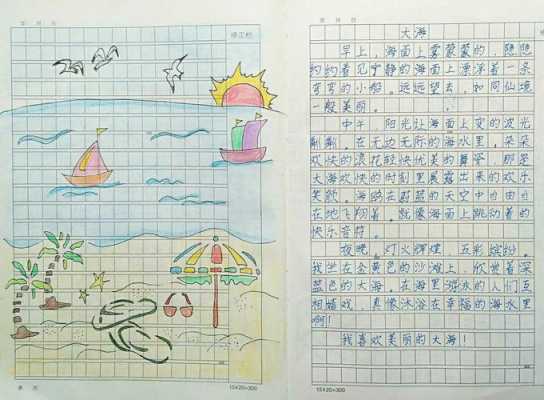 大海
早上，海面上雾蒙蒙的，隐隐
约约看见宁静的海面上漂浮着一条
弯弯的小船。远远望去，如同仙境
一般美丽。
中午，阳光让海面上变的波光
粼粼。在无边无际的海水里，朵朵
欢快的浪花轻快优美的舞姿，那是
大海欢快的时刻里展露出来的欢乐
笑颜。海鸥在蔚蓝的天空中自由自
在地飞翔着，就像海面上跳动着的
快乐音符。
夜晚，灯火辉煌，五彩缤纷。
我坐在金黄色的沙滩上，欣赏着深
蓝色的大海。在海里游泳的人们互
相嬉戏，真像沐浴在幸福的海水里
啊！
我喜欢美丽的大海！
15×20=300
15×20=300